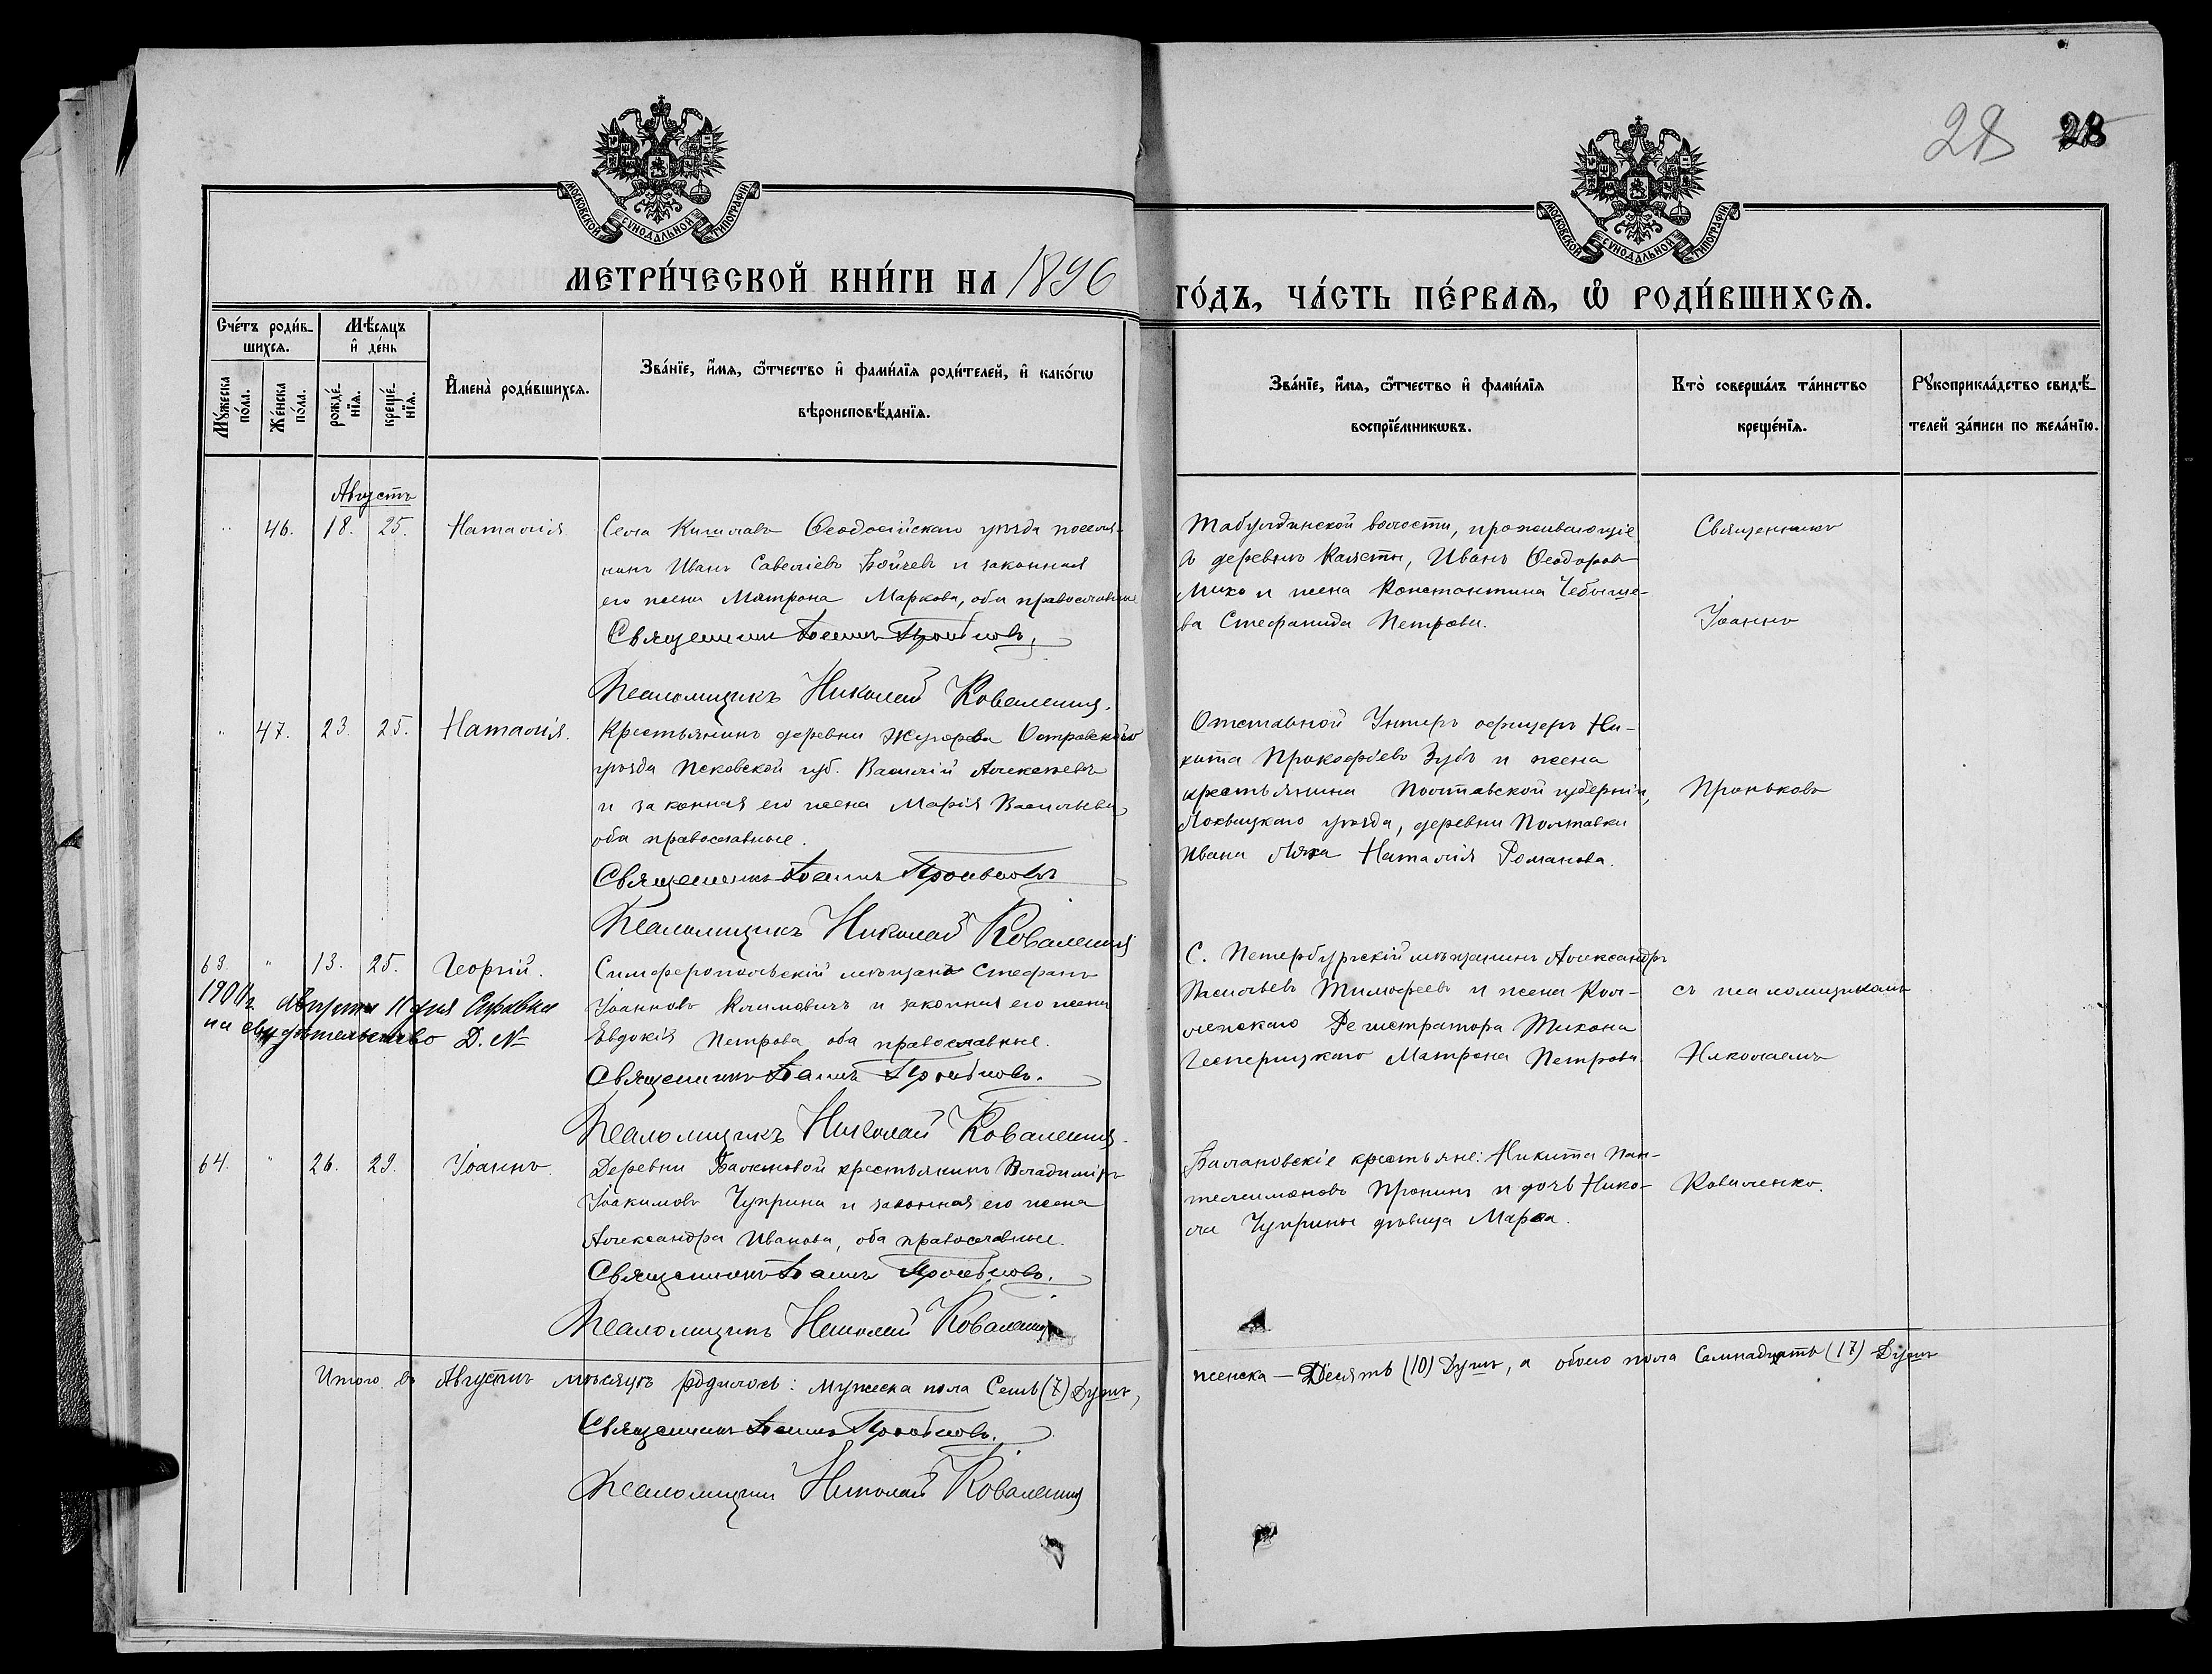 28 28
МОСКОВСКОЙ СѴНОДАЛЬНОЙ ТИПОГРАФІИ
МОСКОВСКОЙ СѴНОДАЛЬНОЙ ТИПОГРАФІИ
МЕТРИ́ЧЕСКОЙ КНИ́ГИ НА 1896
ГО́ДЪ, ЧА́СТЬ ПЕ́РВАѦ, Ѽ РОДИ́ВШИХСѦ.
Сче́тъ роди́в-
шихсѧ.
Мѣ́сѧцъ
и҆ де́нь
Мꙋ́жеска по́ла.
Же́нска по́ла.
рожде́-
нїѧ.
креще́-
нїѧ.
И҆мена̀ роди́вшихсѧ.
Зва́нїе, и҆́мѧ, ѻ҆́тчество и҆ фами́лїѧ роди́телей, и҆ како́гѡ
вѣроисповѣ́данїѧ.
Зва́нїе, и҆́мѧ, ѻ҆́тчество и҆ фами́лїѧ
воспрїе́мникѡвъ.
Кто̀ соверша́лъ та́инство
креще́нїѧ.
Рꙋкоприкла́дство свидѣ́-
телей за́писи по жела́нїю.
Августъ
" 46. 18. 25. Наталія
Села Кишлавъ Ѳеодосійскаго уѣзда поселя-
нинъ Иванъ Савеліевъ Бойчевъ и законная
его жена Матрона Маркова, оба православные
Священникъ Іоаннъ Проньковъ.
Псаломщикъ Николай Коваленко.
Табулдинской волости, проживающіе
въ деревнѣ, Иванъ Ѳеодоровъ
и жена Константина Чебыше-
ва Стефанида Петрова.
Священникъ
Іоаннъ
" 47. 23. 25. Наталія.
Крестьянинъ деревни Островскаго
уѣзда Псковской губ. Василій Алексѣевъ
и законная его жена Марія Васильева,
оба православные.
Священникъ Іоаннъ Проньковъ
Псаломщикъ Николай Коваленко
Отставной Унтеръ офицеръ Ни-
кита Прокофіевъ Зубъ и жена
крестьянина Полтавской губерніи,
Лохвицкаго уѣзда, деревни Полтавки
Ивана Ляха Наталія Романова.
Проньковъ
63. " 13. 25. Георгій.
1901 г. Августа 11 дня Справка
на свидѣтельство Д. №
Симферопольскій мѣщанъ Стефанъ
Іоанновъ Климовичъ и законная его жена
Евдокія Петрова, оба православные.
Священникъ Іоаннъ Проньковъ.
Псаломщикъ Николай Коваленко.
С. Петербургскій мѣщанинъ Александръ
Васильевъ Тимофеевъ и жена Кол-
лежскаго Регистратора Тихона
Матрона Петрова.
съ псаломщикомъ
Николаемъ
64. " 26. 29. Іоаннъ.
Деревни крестьянинъ Владиміръ
Іоакимовъ Чуприна и законная его жена
Александра Иванова, оба православные.
Священникъ Іоаннъ Проньковъ.
Псаломщикъ Николай Коваленко
крестьяне: Никита Пан-
телеимоновъ Пронинъ и дочь Нико-
лая Чуприны дѣвица Марѳа.
Коваленко.
Итого въ Августѣ мѣсяцѣ родилось: мужеска пола Семь (7) Душъ,
женска — Десять (10) Душъ, а обоего пола Семнадцать (17) Душъ
Священникъ Іоаннъ Проньковъ.
Псаломщикъ Николай Коваленко